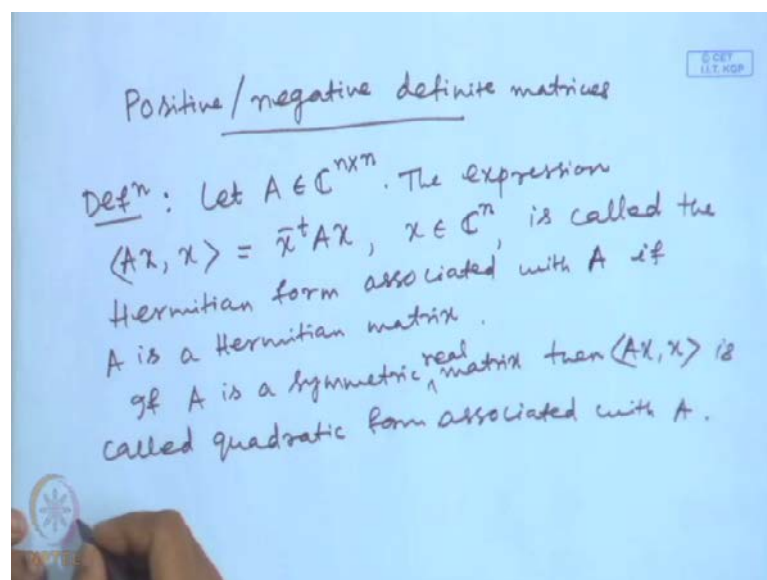 © CET
I.I.T. KGP
Positive/negative definite matrices
Defⁿ: Let A ∈ ℂⁿˣⁿ. The expression
⟨Ax, x⟩ = x̄ᵗAx, x ∈ ℂⁿ, is called the
Hermitian form associated with A if
A is a Hermitian matrix.
If A is a symmetric real matrix then ⟨Ax, x⟩ is
called quadratic form associated with A.
NPTEL